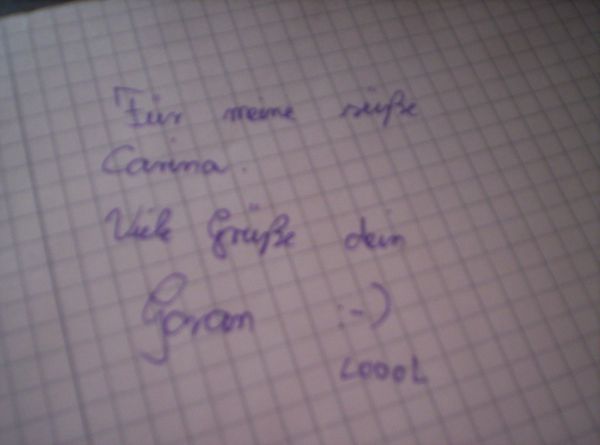 Für meine süße
Carina.
Viele Grüße dein
Goran :-)
LOOOL